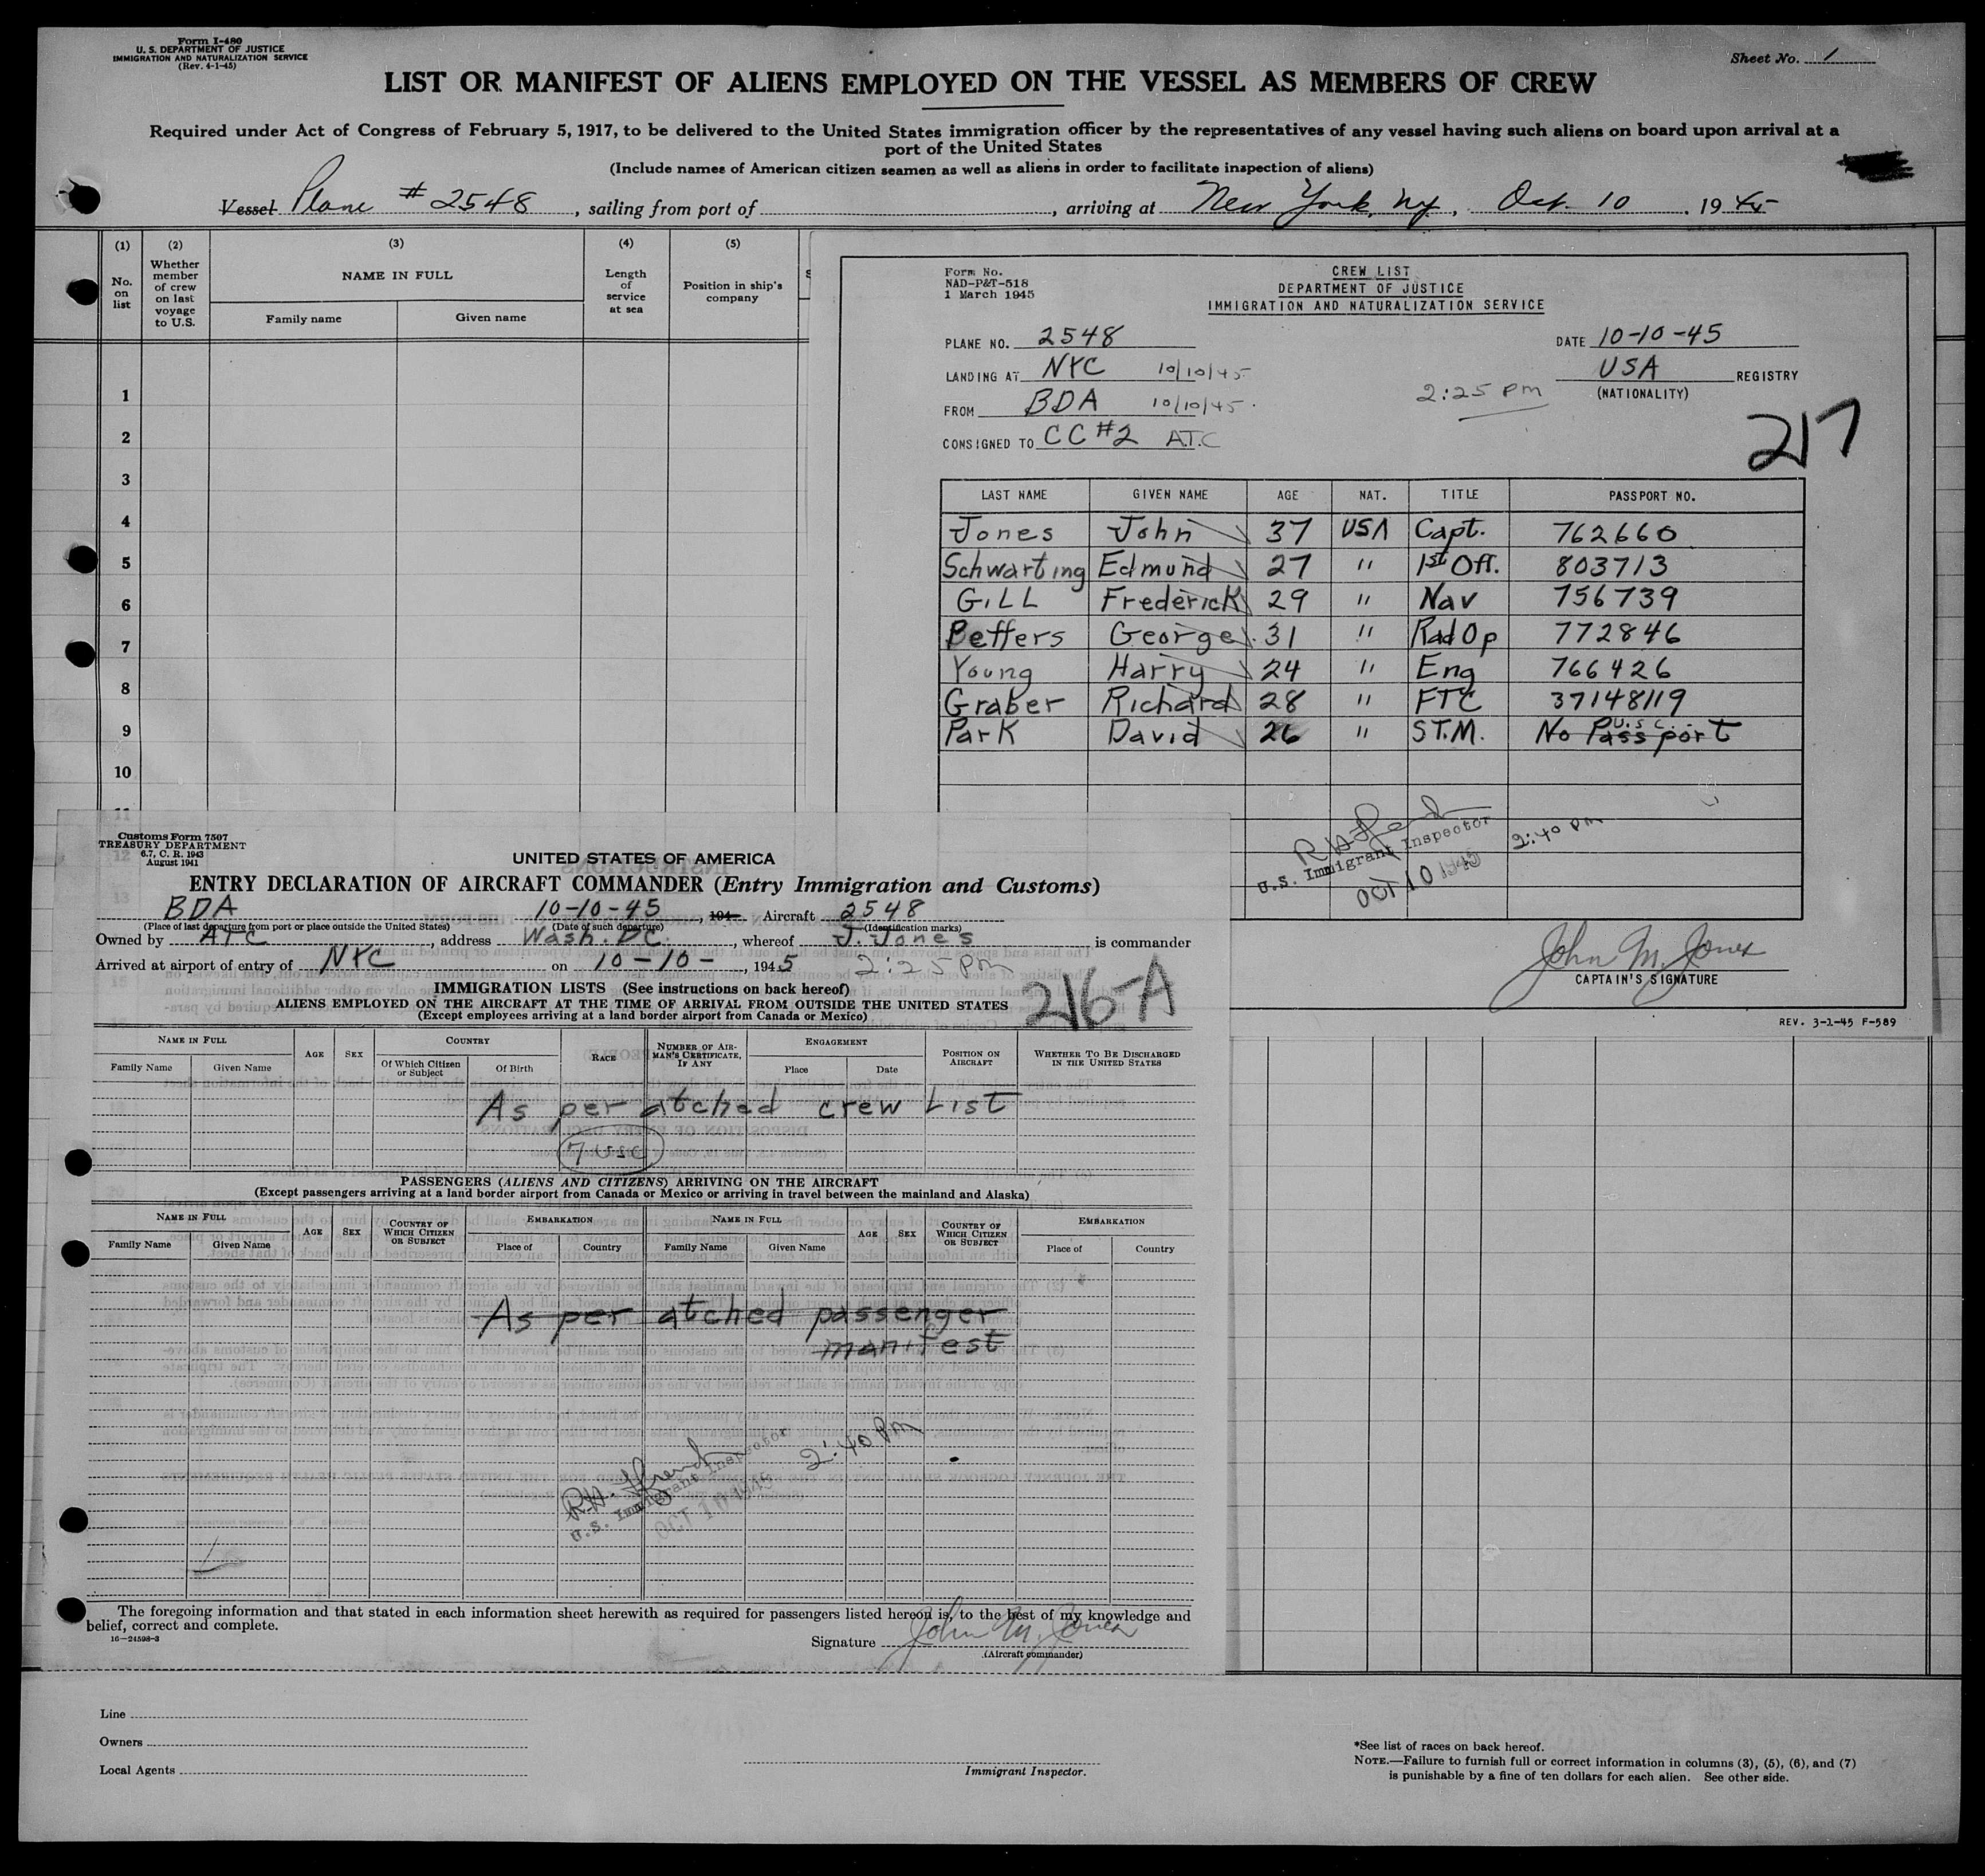 Form I-480
U. S. DEPARTMENT OF JUSTICE
IMMIGRATION AND NATURALIZATION SERVICE
(Rev. 4-1-45)
Sheet No. 1
LIST OR MANIFEST OF ALIENS EMPLOYED ON THE VESSEL AS MEMBERS OF CREW
Required under Act of Congress of February 5, 1917, to be delivered to the United States immigration officer by the representatives of any vessel having such aliens on board upon arrival at a
port of the United States
(Include names of American citizen seamen as well as aliens in order to facilitate inspection of aliens)
Vessel Plane # 2548, sailing from port of , arriving at New York, NY, Oct. 10, 1945
(1) (2) (3) (4) (5)
No. on list
Whether member of crew on last voyage to U.S.
NAME IN FULL
Family name Given name
Length of service at sea
Position in ship's company
1
2
3
4
5
6
7
8
9
10
11
12
13
Form No.
NAD-P&T-518
1 March 1945
CREW LIST
DEPARTMENT OF JUSTICE
IMMIGRATION AND NATURALIZATION SERVICE
PLANE NO. 2548 DATE 10-10-45
LANDING AT NYC 10/10/45 USA REGISTRY
2:25 pm (NATIONALITY)
FROM BDA 10/10/45
217
CONSIGNED TO CC#2 A.T.C
LAST NAME GIVEN NAME AGE NAT. TITLE PASSPORT NO.
Jones John 37 USA Capt. 762660
Schwarting Edmund 27 " 1st Off. 803713
GiLL Frederick 29 " Nav 756739
Beffers George 31 " Rad Op 772846
Young Harry 24 " Eng 766426
Graber Richard 28 " FTC 37148119
Park David 26 " ST.M. No Passport U.S.C.
U.S. Immigrant Inspector
OCT 10 1945
2:40 PM
John M. Jones
CAPTAIN'S SIGNATURE
REV. 3-1-45 F-589
Customs Form 7507
TREASURY DEPARTMENT
6.7, C. R. 1943
August 1941
UNITED STATES OF AMERICA
ENTRY DECLARATION OF AIRCRAFT COMMANDER (Entry Immigration and Customs)
BDA 10-10-45, 194 Aircraft 2548
(Place of last departure from port or place outside the United States) (Date of such departure) (Identification marks)
Owned by ATC, address Wash. DC., whereof J. Jones is commander
Arrived at airport of entry of NYC on 10-10-, 1945 2:25pm
IMMIGRATION LISTS (See instructions on back hereof)
216-A
ALIENS EMPLOYED ON THE AIRCRAFT AT THE TIME OF ARRIVAL FROM OUTSIDE THE UNITED STATES
(Except employees arriving at a land border airport from Canada or Mexico)
NAME IN FULL AGE SEX COUNTRY RACE NUMBER OF AIRMAN'S CERTIFICATE, IF ANY ENGAGEMENT POSITION ON AIRCRAFT WHETHER TO BE DISCHARGED IN THE UNITED STATES
Family Name Given Name Of Which Citizen or Subject Of Birth Place Date
As per atched crew List
7 USC
PASSENGERS (ALIENS AND CITIZENS) ARRIVING ON THE AIRCRAFT
(Except passengers arriving at a land border airport from Canada or Mexico or arriving in travel between the mainland and Alaska)
NAME IN FULL AGE SEX COUNTRY OF WHICH CITIZEN OR SUBJECT EMBARKATION NAME IN FULL AGE SEX COUNTRY OF WHICH CITIZEN OR SUBJECT EMBARKATION
Family Name Given Name Place of Country Family Name Given Name Place of Country
As per atched passenger
manifest
U.S. Immigrant Inspector
OCT 10 1945
2:40 PM
The foregoing information and that stated in each information sheet herewith as required for passengers listed hereon is, to the best of my knowledge and
belief, correct and complete.
16—24598-3
Signature John M. Jones
(Aircraft commander)
Line
Owners
Local Agents
Immigrant Inspector.
*See list of races on back hereof.
NOTE.—Failure to furnish full or correct information in columns (3), (5), (6), and (7)
is punishable by a fine of ten dollars for each alien. See other side.